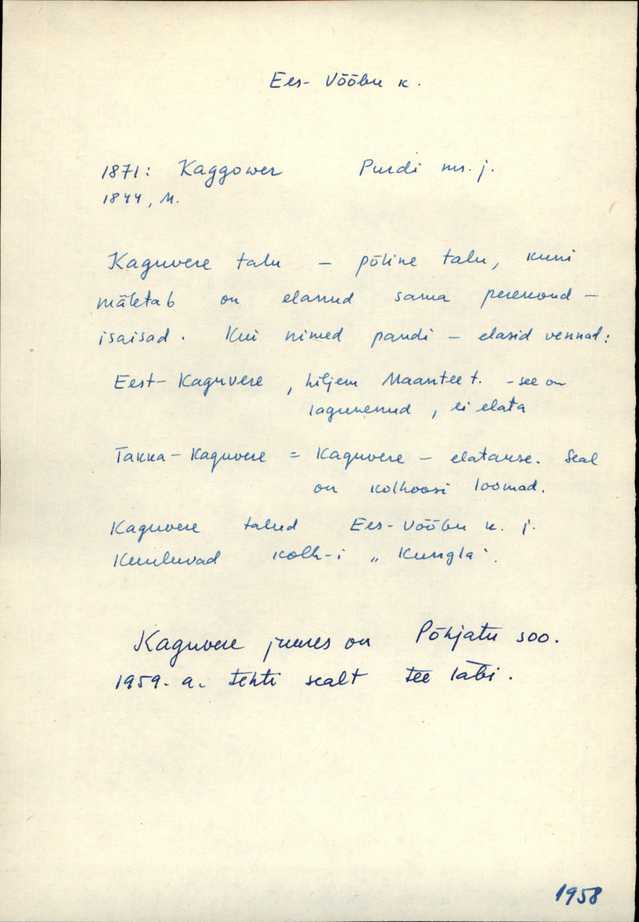 Ees-Vööbu k.
1871: Kaggower Purdi mr. j.
1844, M.
Kaguvere talu – põline talu, kuni
mäletab on elanud sama perekond –
isaisad. Kui nimed pandi – elasid vennad:
Eest-Kaguvere, hiljem Maantee t. - see on
lagunenud, ei elata
Takka-Kaguvere = Kaguvere – elatakse. Seal
on kolhoosi loomad.
Kaguvere talud Ees-Vööbu k. j.
Kuuluvad kolh-i „Kungla".
Kaguvere juures on Põhjatu soo.
1959. a. tehti sealt tee läbi.
1958